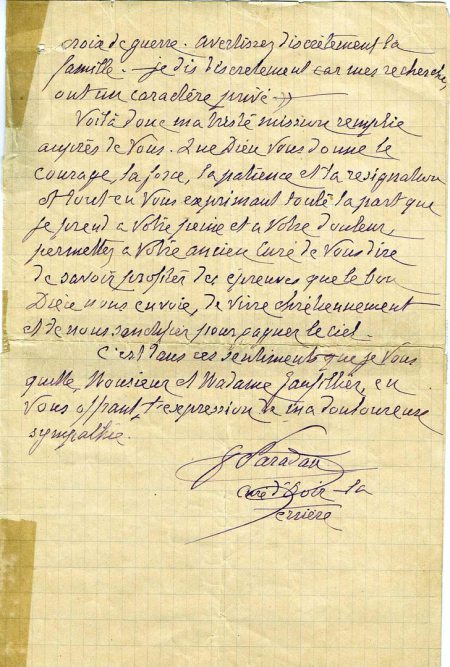 croix de guerre. Avertissez discrètement la
famille. - Je dis discretement car mes recherches,
ont un caractère privé - »
Voilà donc ma triste mission remplie
auprès de Vous. Que Dieu Vous donne le
courage, la force, la patience et la resignation
et tout en Vous exprimant toute la part que
je prend a Votre peine et a Votre douleur,
permettez a Votre ancien Curé de Vous dire
de savoir profiter des épreuves que le bon
Dieu nous envoie, de vivre chrétiennement
et de nous sanctifier pour gagner le ciel.
C'est dans ces sentiments que je Vous
quitte, Monsieur et Madame en
Vous offrant l'expression de ma douloureuse
sympathie.
curé d' la